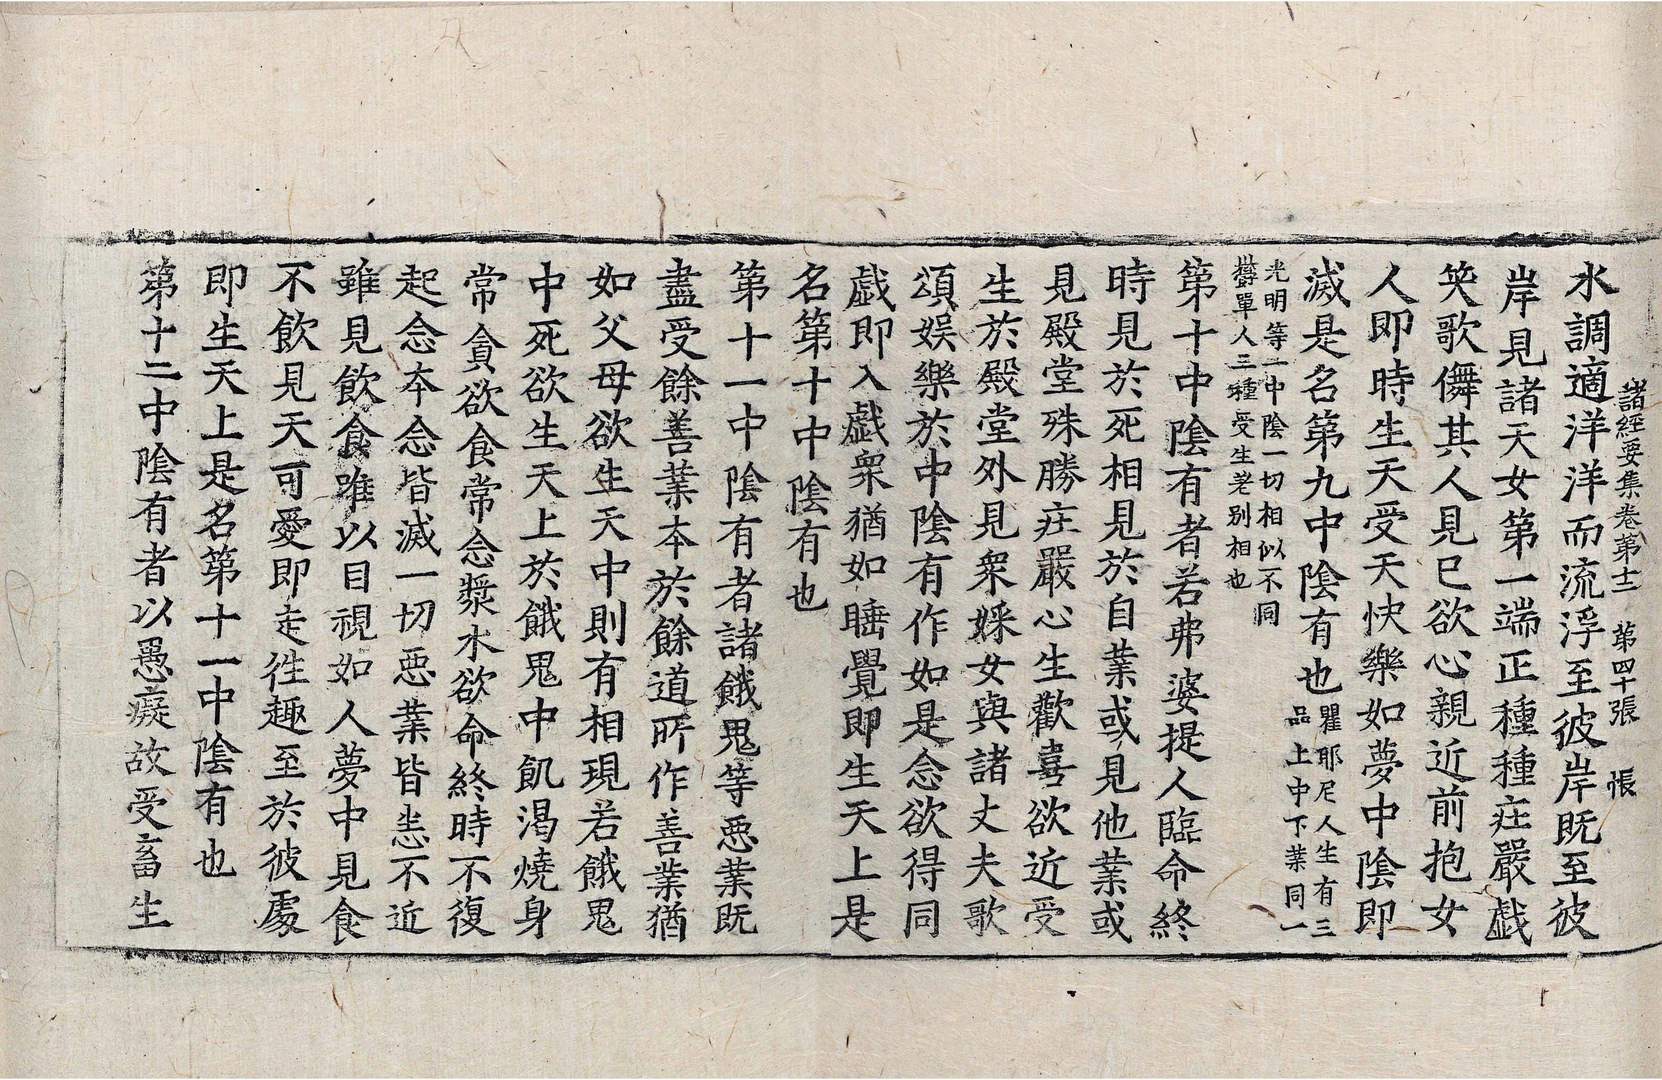 諸經要集卷第十二 第四十張 張
水調適洋洋而流浮至彼岸既至彼
岸見諸天女第一端正種種庄嚴戯
笑歌儛其人見已欲心親近前抱女
人即時生天受天快樂如夢中陰即
滅是名第九中陰有也
瞿耶尼人生有三
品上中下業同一
光明等二中陰一切相似不同
欝單人三種受生差別相也
第十中陰有者若弗婆提人臨命終
時見於死相見於自業或見他業或
見殿堂殊勝庄嚴心生歡喜欲近受
生於殿堂外見衆婇女與諸丈夫歌
頌娛樂於中陰有作如是念欲得同
戯即入戯衆猶如睡覺即生天上是
名第十中陰有也
第十一中陰有者諸餓鬼等惡業既
盡受餘善業本於餘道所作善業猶
如父母欲生天中則有相現若餓鬼
中死欲生天上於餓鬼中飢渴燒身
常貪欲食常念漿水欲命終時不復
起念本念皆滅一切惡業皆悉不近
雖見飲食唯以目視如人夢中見食
不飲見天可愛即走往趣至於彼處
即生天上是名第十一中陰有也
第十二中陰有者以愚癡故受畜生